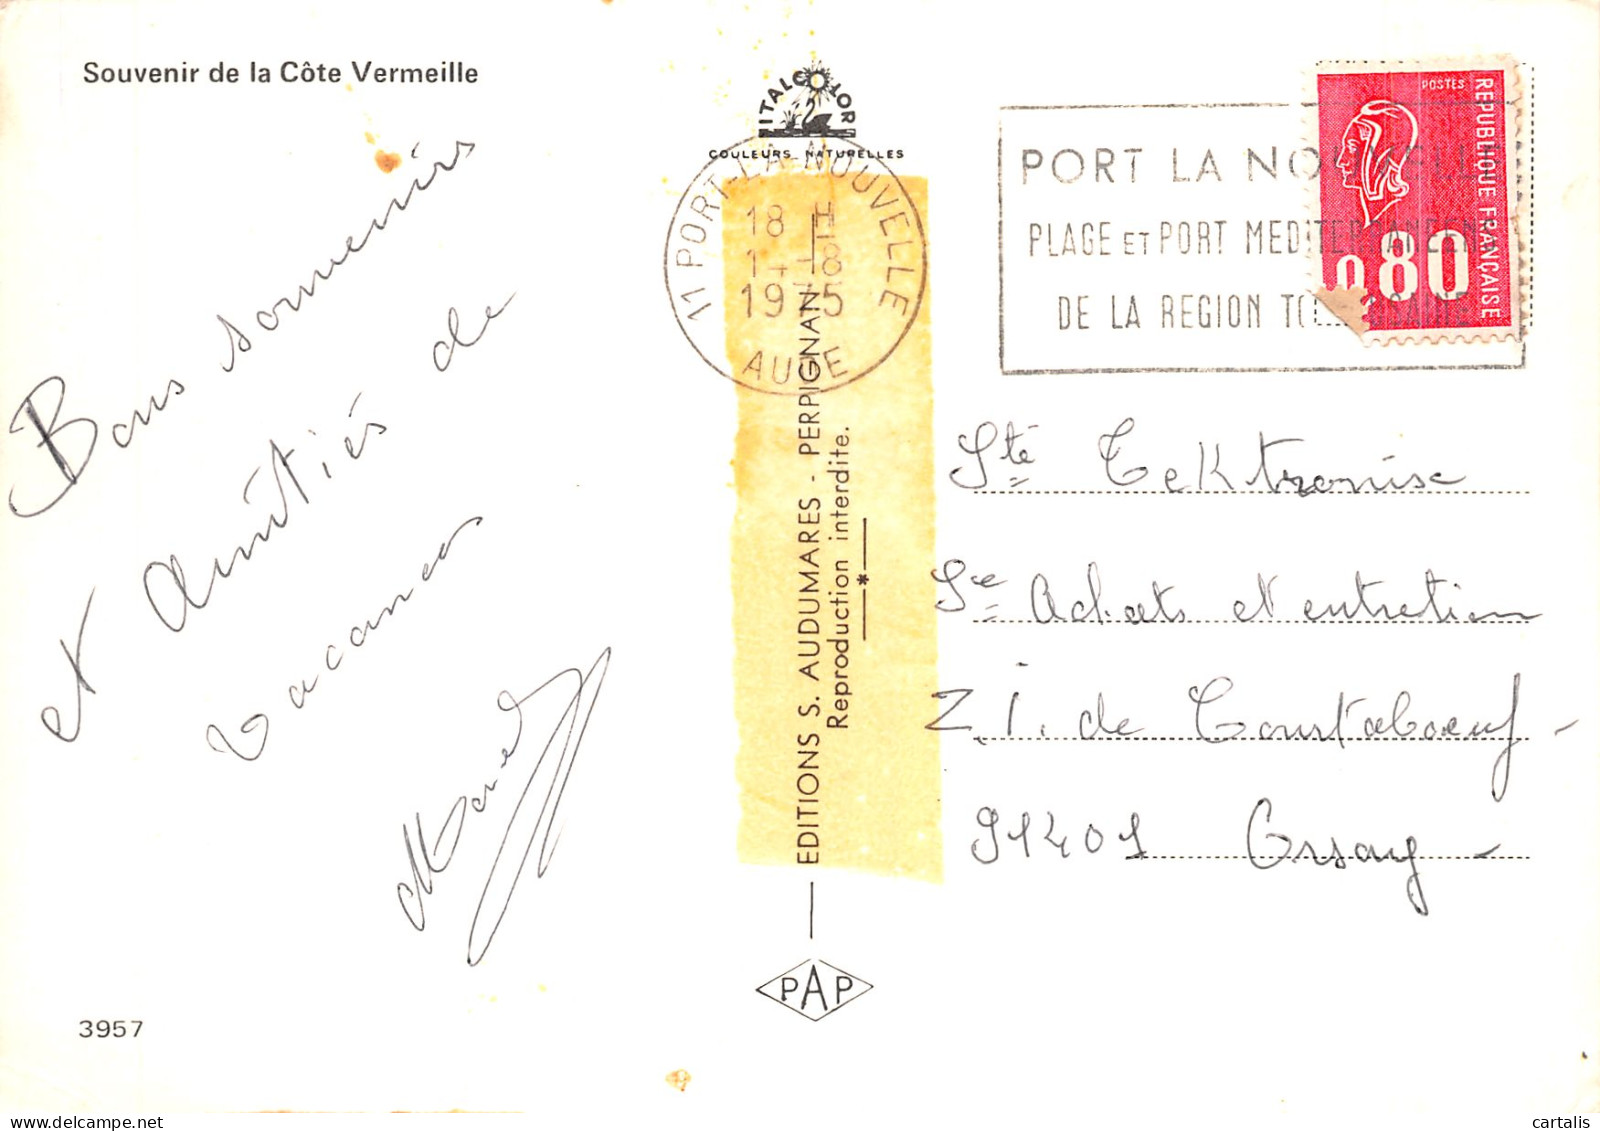 Souvenir de la Côte Vermeille
Bons souvenirs
et Amitiés de
vacances
3957
ITALCOLOR
COULEURS NATURELLES
11 PORT-LA-NOUVELLE
18 H
14-8
1975
AUDE
EDITIONS S. AUDUMARES - PERPIGNAN
Reproduction interdite.
*
PAP
PORT LA NOUVELLE
PLAGE ET PORT MEDITERRANEEN
DE LA REGION TOULOUSAINE
POSTES
REPUBLIQUE FRANÇAISE
0.80
Sté Tektronix
Se Achats et entretien
Z.I. de Courtaboeuf -
91401 Orsay -
cartalis for delcampe.net